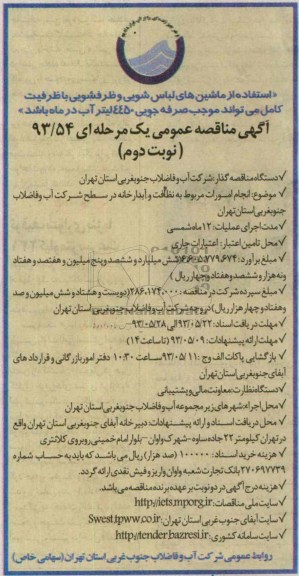 «استفاده از ماشین های لباس شویی و ظرفشویی با ظرفیت
کامل می تواند موجب صرفه جویی ۴۴۵۰ لیتر آب در ماه باشد»
آگهی مناقصه عمومی یک مرحله ای ۹۳/۵۴
(نوبت دوم)
✓دستگاه مناقصه گذار: شرکت آب و فاضلاب جنوبغربی استان تهران
✓موضوع: انجام امورات مربوط به نظافت و آبدارخانه در سطح شرکت آب و فاضلاب
جنوبغربی استان تهران
✓مدت اجرای عملیات: ۱۲ ماه شمسی
✓محل تامین اعتبار: اعتبارات جاری
✓مبلغ برآورد: ۶،۶۰۵،۷۷۹،۶۷۴ (شش میلیارد و ششصد و پنج میلیون و هفتصد و هفتاد
ونه هزار و ششصد وهفتاد و چهار ریال)
✓مبلغ سپرده شرکت در مناقصه: ۲۸۶،۱۷۴،۰۰۰ (دویست و هشتاد و شش میلیون و صد
وهفتاد و چهار هزار ریال) در وجه شرکت آب و فاضلاب جنوبغربی استان تهران
✓مهلت دریافت اسناد: ۹۳/۰۵/۲۲ الی ۹۳/۰۵/۲۸
✓مهلت ارائه پیشنهادات: ۹۳/۰۵/۰۹ (تا ساعت ۱۴)
✓بازگشایی پاکات الف و ج: ۹۳/۰۵/۱۱ ساعت ۱۰:۳۰ دفتر امور بازرگانی و قراردادهای
آبفای جنوبغربی استان تهران
✓دستگاه نظارت: معاونت مالی و پشتیبانی
✓محل اجراء: شهرهای زیر مجموعه آب و فاضلاب جنوبغربی استان تهران
✓محل دریافت اسناد و ارائه پیشنهادات: دبیرخانه آبفای جنوب غربی استان تهران واقع
در تهران کیلومتر ۲۲ جاده ساوه-شهرک واوان-بلوار امام خمینی روبروی کلانتری
✓هزینه خرید اسناد: ۱۰۰۰۰۰ (صد هزار) ریال می باشد که باید به حساب شماره
۲۷۰۶۹۷۷۳۹ بانک تجارت شعبه واوان واریز و فیش نقدی ارائه گردد.
✓هزینه درج آگهی در دو نوبت بر عهده برنده مناقصه می باشد.
✓سایت ملی مناقصات: http://iets.mporg.ir
✓سایت آبفای جنوب غربی استان تهران: Swest.tpww.co.ir
✓سایت سامانه کشوری: http://tender.bazresi.ir
روابط عمومی شرکت آب و فاضلاب جنوب غربی استان تهران (سهامی خاص)